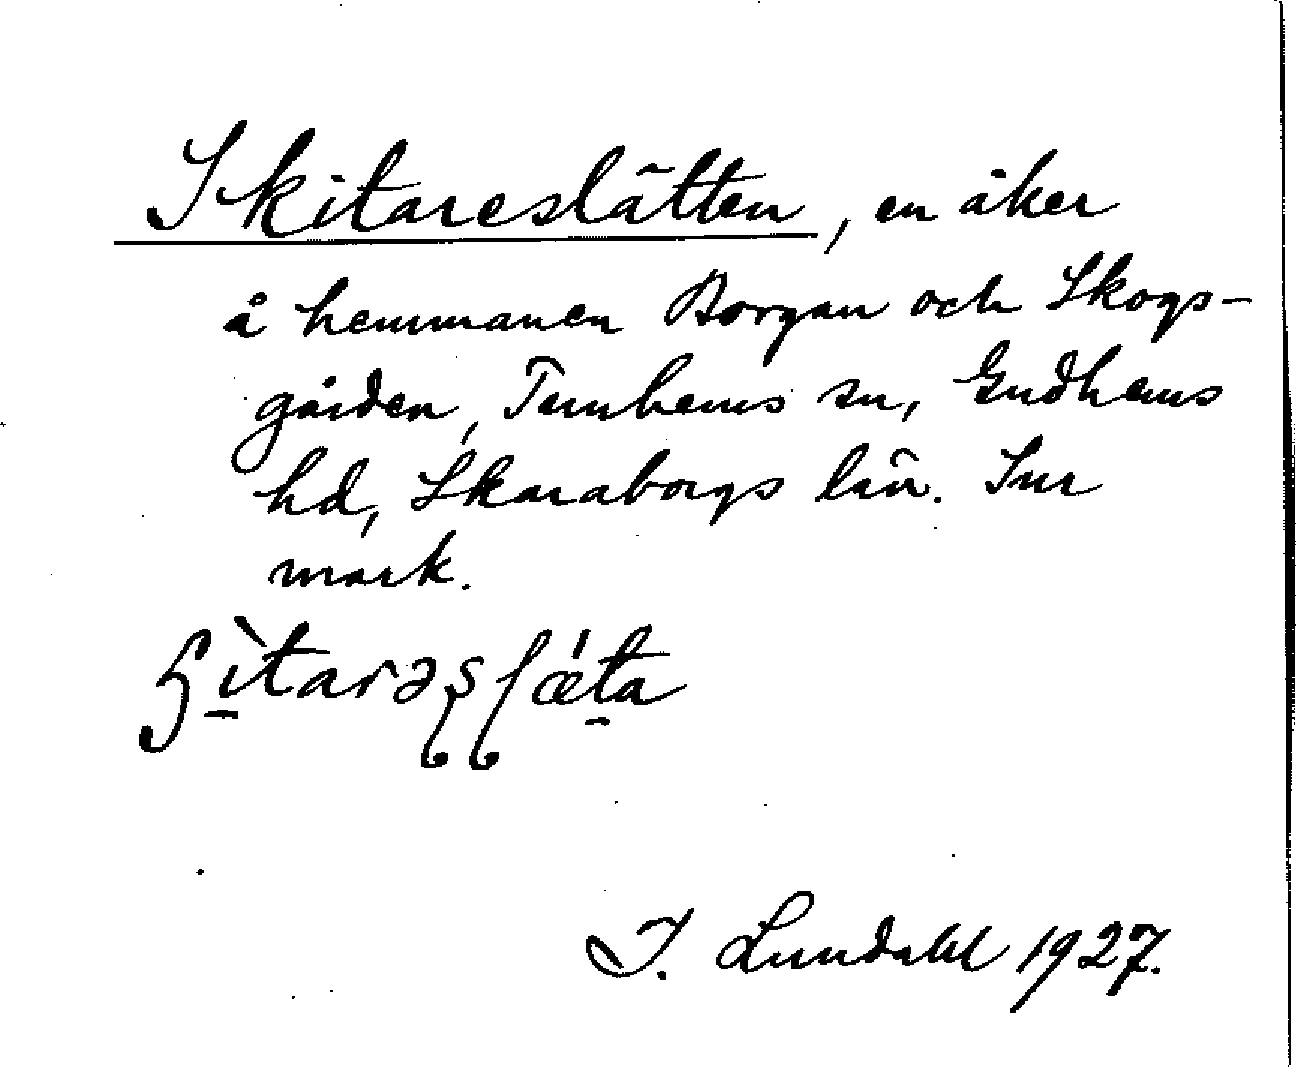 Skitareslätten, en åker
å hemmanen Borgan och Skogs-
gården, Tunhems sn, Gudhems
hd, Skaraborgs län. Sur
mark.
I. Lundahl 1927.